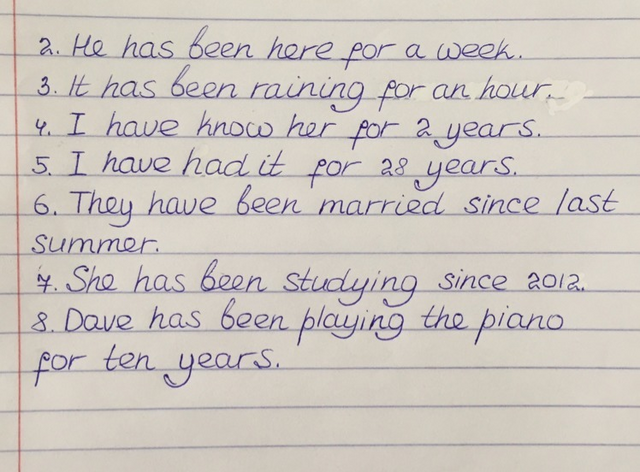 2. He has been here for a week.
3. It has been raining for an hour.
4. I have know her for 2 years.
5. I have had it for 28 years.
6. They have been married since last
summer.
7. She has been studying since 2012.
8. Dave has been playing the piano
for ten years.